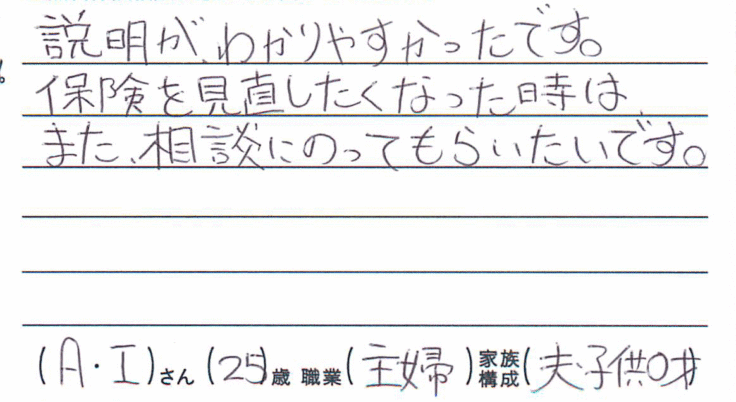 説明が、わかりやすかったです。
保険を見直したくなった時は、
また、相談にのってもらいたいです。
(A・I)さん (25)歳 職業(主婦)家族構成(夫・子供0才